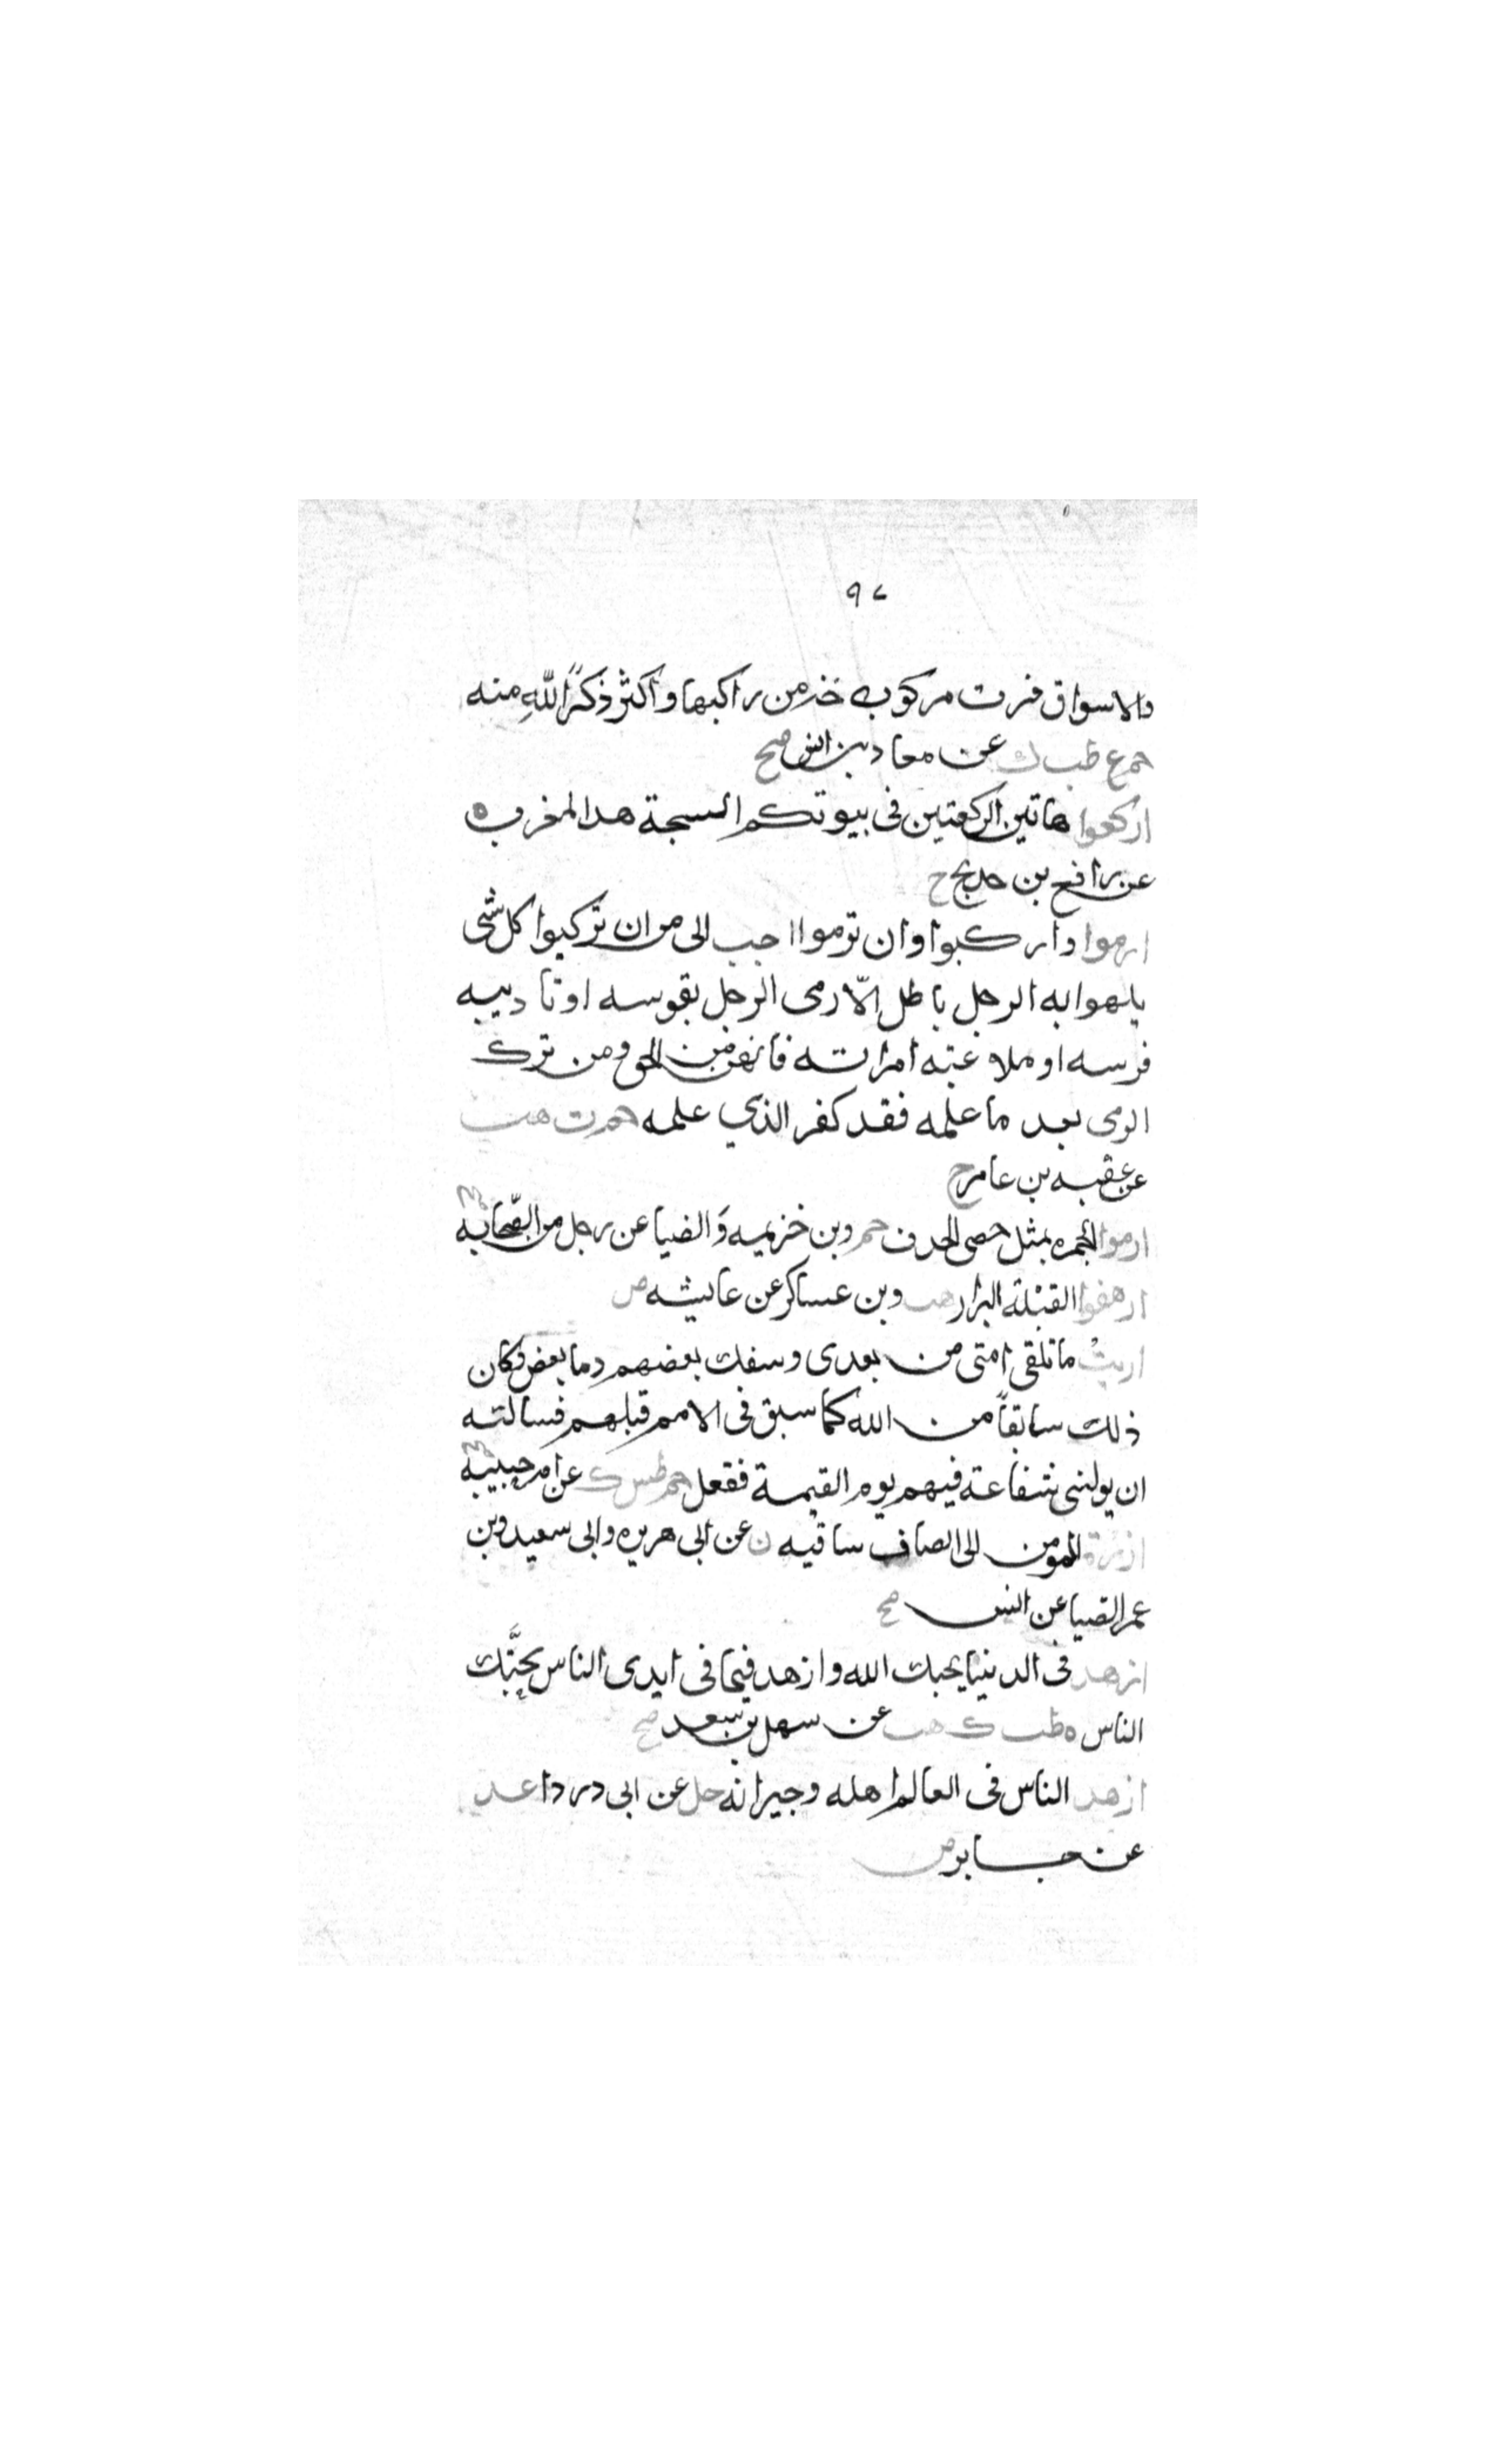 ٩٧
والاسواق فرت مركوبه خير من راكبها واكثر ذكرًا لله منه
حم ع طب ك عن معاد بن انس صح
اركعوا هاتين الركعتين فى بيوتكم السبحة هدا المغرب ه
عن رافع بن حديج ح
ارموا واركبوا وان ترموا احب الى من ان تركبوا كل شى
يلهوا به الرجل باطل الّا رمى الرجل بقوسه او تاديبه
فرسه او ملاعبته امراته فانهن من الحق ومن ترك
الرمى بعد ما علمه فقد كفر الذي علمه حم ت هب
عن عقبه بن عامر ح
ارموا الجمره بمثل حصى الحدف حم وبن خزيميه وَالضيا عن رجل من الصّحابه
ارهفوا القبْلة البزار هب وبن عساكر عن عايشه ض
اريتْ ما تلقى امتى من بعدى وسفك بعضهم دما بعض وكان
ذلك سابقاً من الله كما سبق فى الامم قبلهم فسالته
ان يولنى شفاعة فيهم يوم القيمة ففعل حم طس ك عن ام حبيبه
ازرة المومن الى انصاف ساقيه ن عن ابى هريره وابى سعيد وبن
عمر الضيا عن انس صح
ازهد فى الدنيا يحبك الله وازهد فيما فى ايدى الناس يحبَّك
الناس ه طب ك هب عن سهل بن سعد صح
ازهد الناس فى العالم اهله وجيرانه حل عن ابى دردا عد
عن جابر ض